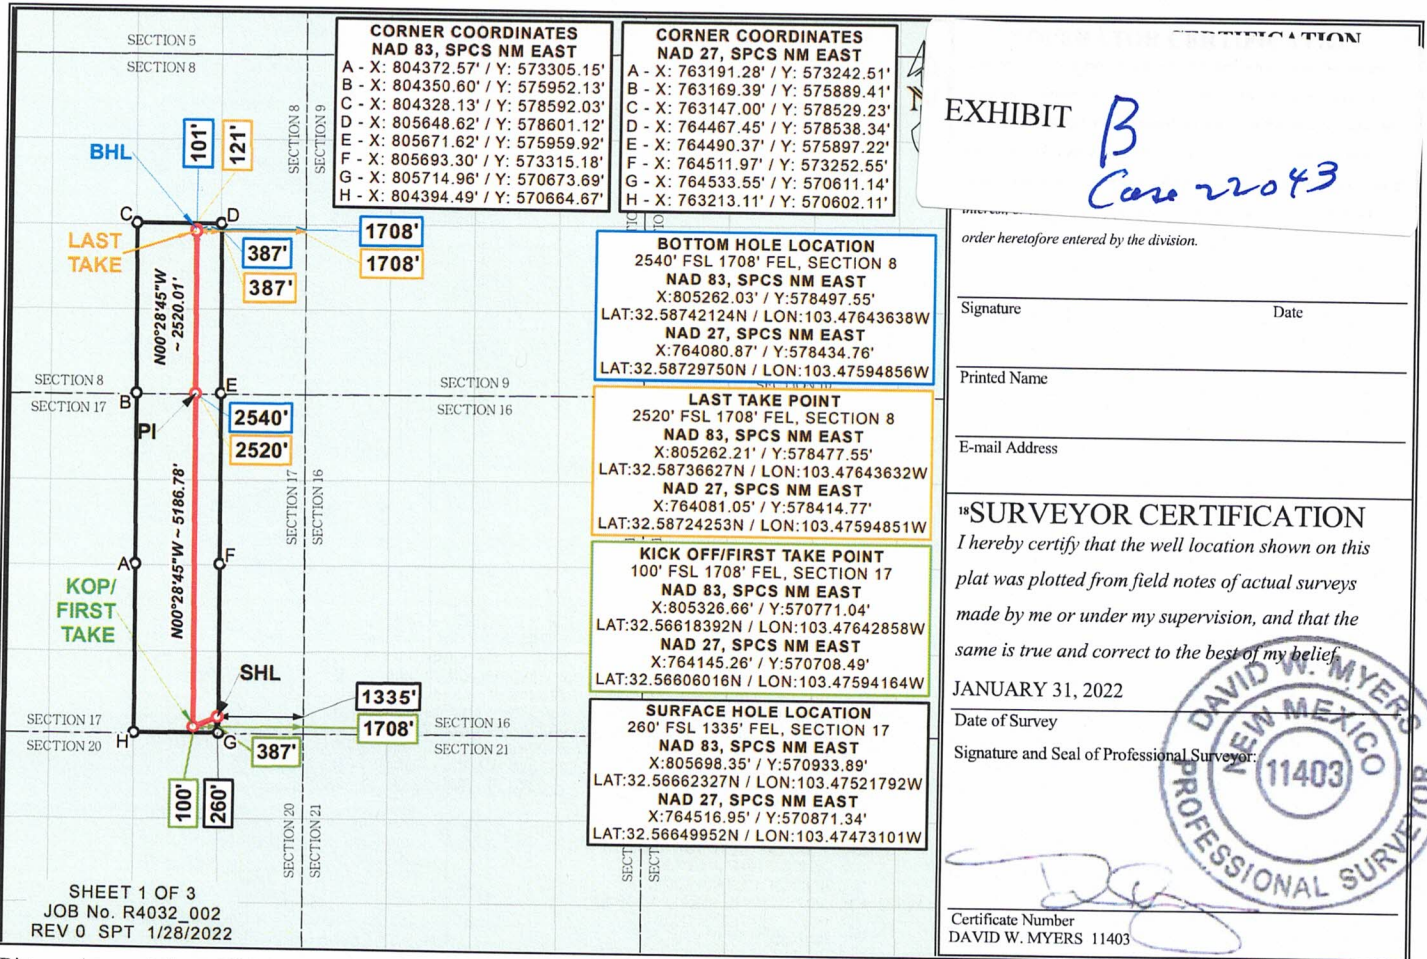 SECTION 5
SECTION 8
SECTION 8
SECTION 9
BHL
101'
121'
C
D
LAST
TAKE
387'
387'
1708'
1708'
N00°28'45"W
~ 2520.01'
SECTION 8
SECTION 17
B
E
SECTION 9
SECTION 16
PI
2540'
2520'
SECTION 17
SECTION 16
N00°28'45"W ~ 5186.78'
A
F
KOP/
FIRST
TAKE
SHL
1335'
1708'
SECTION 17
SECTION 20
H
G
387'
SECTION 16
SECTION 21
100'
260'
SECTION 20
SECTION 21
SHEET 1 OF 3
JOB No. R4032_002
REV 0 SPT 1/28/2022
CORNER COORDINATES
NAD 83, SPCS NM EAST
A - X: 804372.57' / Y: 573305.15'
B - X: 804350.60' / Y: 575952.13'
C - X: 804328.13' / Y: 578592.03'
D - X: 805648.62' / Y: 578601.12'
E - X: 805671.62' / Y: 575959.92'
F - X: 805693.30' / Y: 573315.18'
G - X: 805714.96' / Y: 570673.69'
H - X: 804394.49' / Y: 570664.67'
CORNER COORDINATES
NAD 27, SPCS NM EAST
A - X: 763191.28' / Y: 573242.51'
B - X: 763169.39' / Y: 575889.41'
C - X: 763147.00' / Y: 578529.23'
D - X: 764467.45' / Y: 578538.34'
E - X: 764490.37' / Y: 575897.22'
F - X: 764511.97' / Y: 573252.55'
G - X: 764533.55' / Y: 570611.14'
H - X: 763213.11' / Y: 570602.11'
BOTTOM HOLE LOCATION
2540' FSL 1708' FEL, SECTION 8
NAD 83, SPCS NM EAST
X:805262.03' / Y:578497.55'
LAT:32.58742124N / LON:103.47643638W
NAD 27, SPCS NM EAST
X:764080.87' / Y:578434.76'
LAT:32.58729750N / LON:103.47594856W
LAST TAKE POINT
2520' FSL 1708' FEL, SECTION 8
NAD 83, SPCS NM EAST
X:805262.21' / Y:578477.55'
LAT:32.58736627N / LON:103.47643632W
NAD 27, SPCS NM EAST
X:764081.05' / Y:578414.77'
LAT:32.58724253N / LON:103.47594851W
KICK OFF/FIRST TAKE POINT
100' FSL 1708' FEL, SECTION 17
NAD 83, SPCS NM EAST
X:805326.66' / Y:570771.04'
LAT:32.56618392N / LON:103.47642858W
NAD 27, SPCS NM EAST
X:764145.26' / Y:570708.49'
LAT:32.56606016N / LON:103.47594164W
SURFACE HOLE LOCATION
260' FSL 1335' FEL, SECTION 17
NAD 83, SPCS NM EAST
X:805698.35' / Y:570933.89'
LAT:32.56662327N / LON:103.47521792W
NAD 27, SPCS NM EAST
X:764516.95' / Y:570871.34'
LAT:32.56649952N / LON:103.47473101W
EXHIBIT B
Case 22043
order heretofore entered by the division.
Signature Date
Printed Name
E-mail Address
18SURVEYOR CERTIFICATION
I hereby certify that the well location shown on this
plat was plotted from field notes of actual surveys
made by me or under my supervision, and that the
same is true and correct to the best of my belief.
JANUARY 31, 2022
Date of Survey
Signature and Seal of Professional Surveyor:
DAVID W. MYERS
NEW MEXICO
11403
PROFESSIONAL SURVEYOR
Certificate Number
DAVID W. MYERS 11403